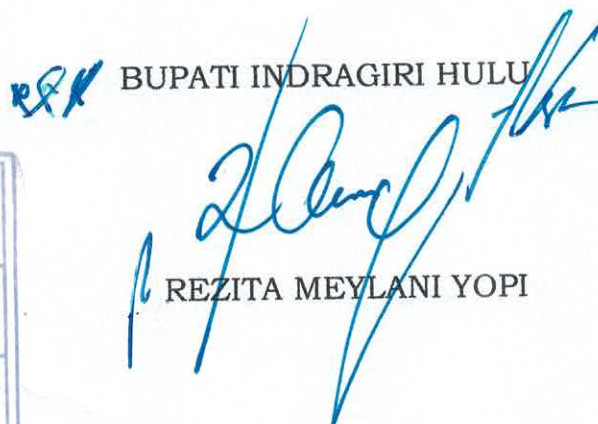 BUPATI INDRAGIRI HULU
REZITA MEYLANI YOPI